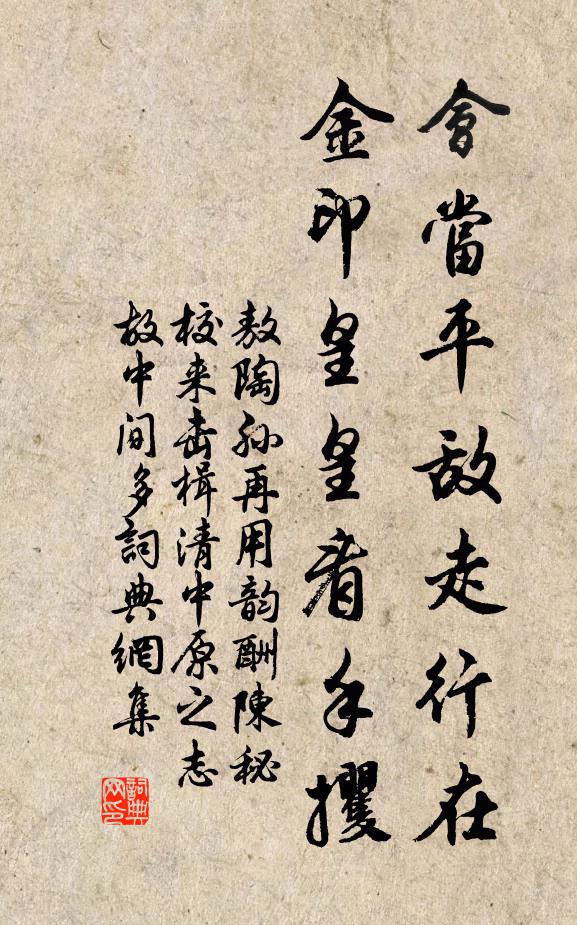 會當平敵走行在
金印皇皇看手攫
敖陶孙再用韵酬陳秘
校来击楫清中原之志
故中间多詞典網集
詞典網印